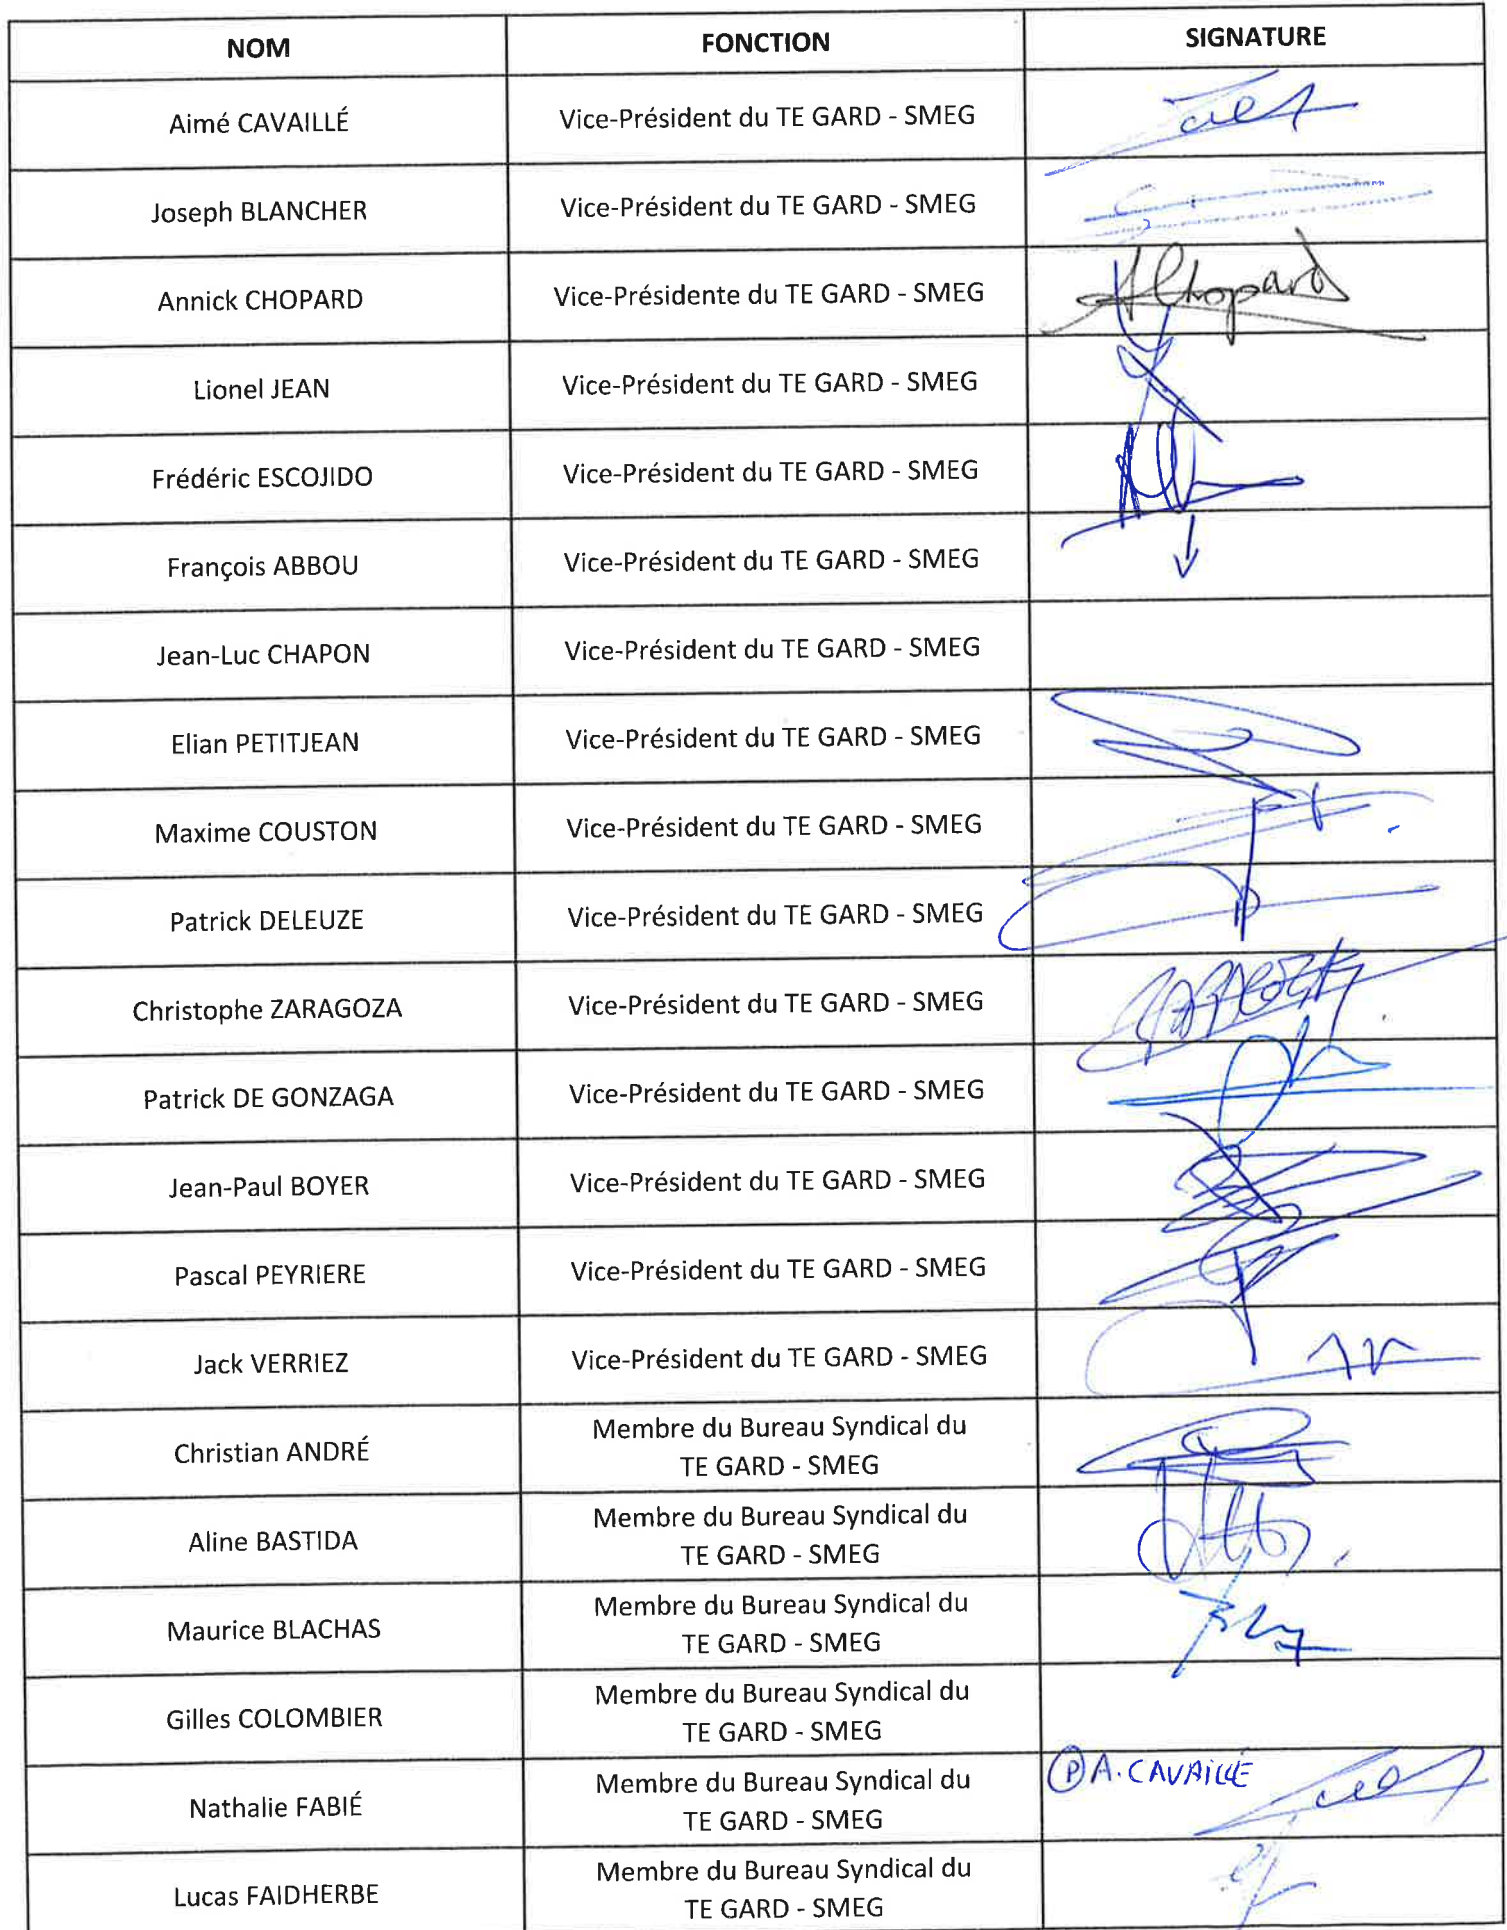 NOM FONCTION SIGNATURE
Aimé CAVAILLÉ Vice-Président du TE GARD - SMEG
Joseph BLANCHER Vice-Président du TE GARD - SMEG
Annick CHOPARD Vice-Présidente du TE GARD - SMEG AChopard
Lionel JEAN Vice-Président du TE GARD - SMEG
Frédéric ESCOJIDO Vice-Président du TE GARD - SMEG
François ABBOU Vice-Président du TE GARD - SMEG
Jean-Luc CHAPON Vice-Président du TE GARD - SMEG
Elian PETITJEAN Vice-Président du TE GARD - SMEG
Maxime COUSTON Vice-Président du TE GARD - SMEG
Patrick DELEUZE Vice-Président du TE GARD - SMEG
Christophe ZARAGOZA Vice-Président du TE GARD - SMEG
Patrick DE GONZAGA Vice-Président du TE GARD - SMEG
Jean-Paul BOYER Vice-Président du TE GARD - SMEG
Pascal PEYRIERE Vice-Président du TE GARD - SMEG
Jack VERRIEZ Vice-Président du TE GARD - SMEG
Christian ANDRÉ Membre du Bureau Syndical du
TE GARD - SMEG
Aline BASTIDA Membre du Bureau Syndical du
TE GARD - SMEG
Maurice BLACHAS Membre du Bureau Syndical du
TE GARD - SMEG
Gilles COLOMBIER Membre du Bureau Syndical du
TE GARD - SMEG
Nathalie FABIÉ Membre du Bureau Syndical du
TE GARD - SMEG
Ⓟ A. CAVAILLÉ
Lucas FAIDHERBE Membre du Bureau Syndical du
TE GARD - SMEG